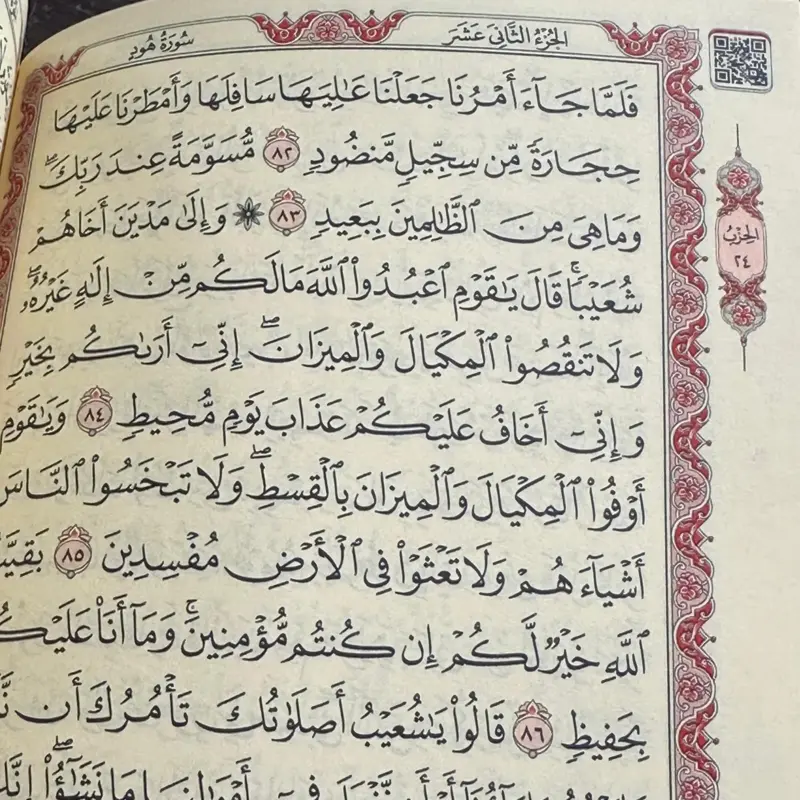 سُورَةُ هُودٍ
الجُزْءُ الثَّانِي عَشَرَ
فَلَمَّا جَآءَ أَمْرُنَا جَعَلْنَا عَٰلِيَهَا سَافِلَهَا وَأَمْطَرْنَا عَلَيْهَا
حِجَارَةً مِّن سِجِّيلٍ مَّنضُودٍ ٨٢ مُّسَوَّمَةً عِندَ رَبِّكَۖ
وَمَا هِيَ مِنَ ٱلظَّٰلِمِينَ بِبَعِيدٍ ٨٣ ۞ وَإِلَىٰ مَدْيَنَ أَخَاهُمْ
شُعَيْبًاۚ قَالَ يَٰقَوْمِ ٱعْبُدُوا۟ ٱللَّهَ مَا لَكُم مِّنْ إِلَٰهٍ غَيْرُهُۥۖ
وَلَا تَنقُصُوا۟ ٱلْمِكْيَالَ وَٱلْمِيزَانَۖ إِنِّىٓ أَرَىٰكُم بِخَيْرٍ
وَإِنِّىٓ أَخَافُ عَلَيْكُمْ عَذَابَ يَوْمٍ مُّحِيطٍ ٨٤ وَيَٰقَوْمِ
أَوْفُوا۟ ٱلْمِكْيَالَ وَٱلْمِيزَانَ بِٱلْقِسْطِۖ وَلَا تَبْخَسُوا۟ ٱلنَّاسَ
أَشْيَآءَهُمْ وَلَا تَعْثَوْا۟ فِى ٱلْأَرْضِ مُفْسِدِينَ ٨٥
ٱللَّهِ خَيْرٌ لَّكُمْ إِن كُنتُم مُّؤْمِنِينَۚ وَمَآ أَنَا۠
بِحَفِيظٍ ٨٦ قَالُوا۟ يَٰشُعَيْبُ أَصَلَوٰتُكَ تَأْمُرُكَ أَن
مَا نَشَٰٓؤُا۟ۖ
الحِزْبُ
٢٤